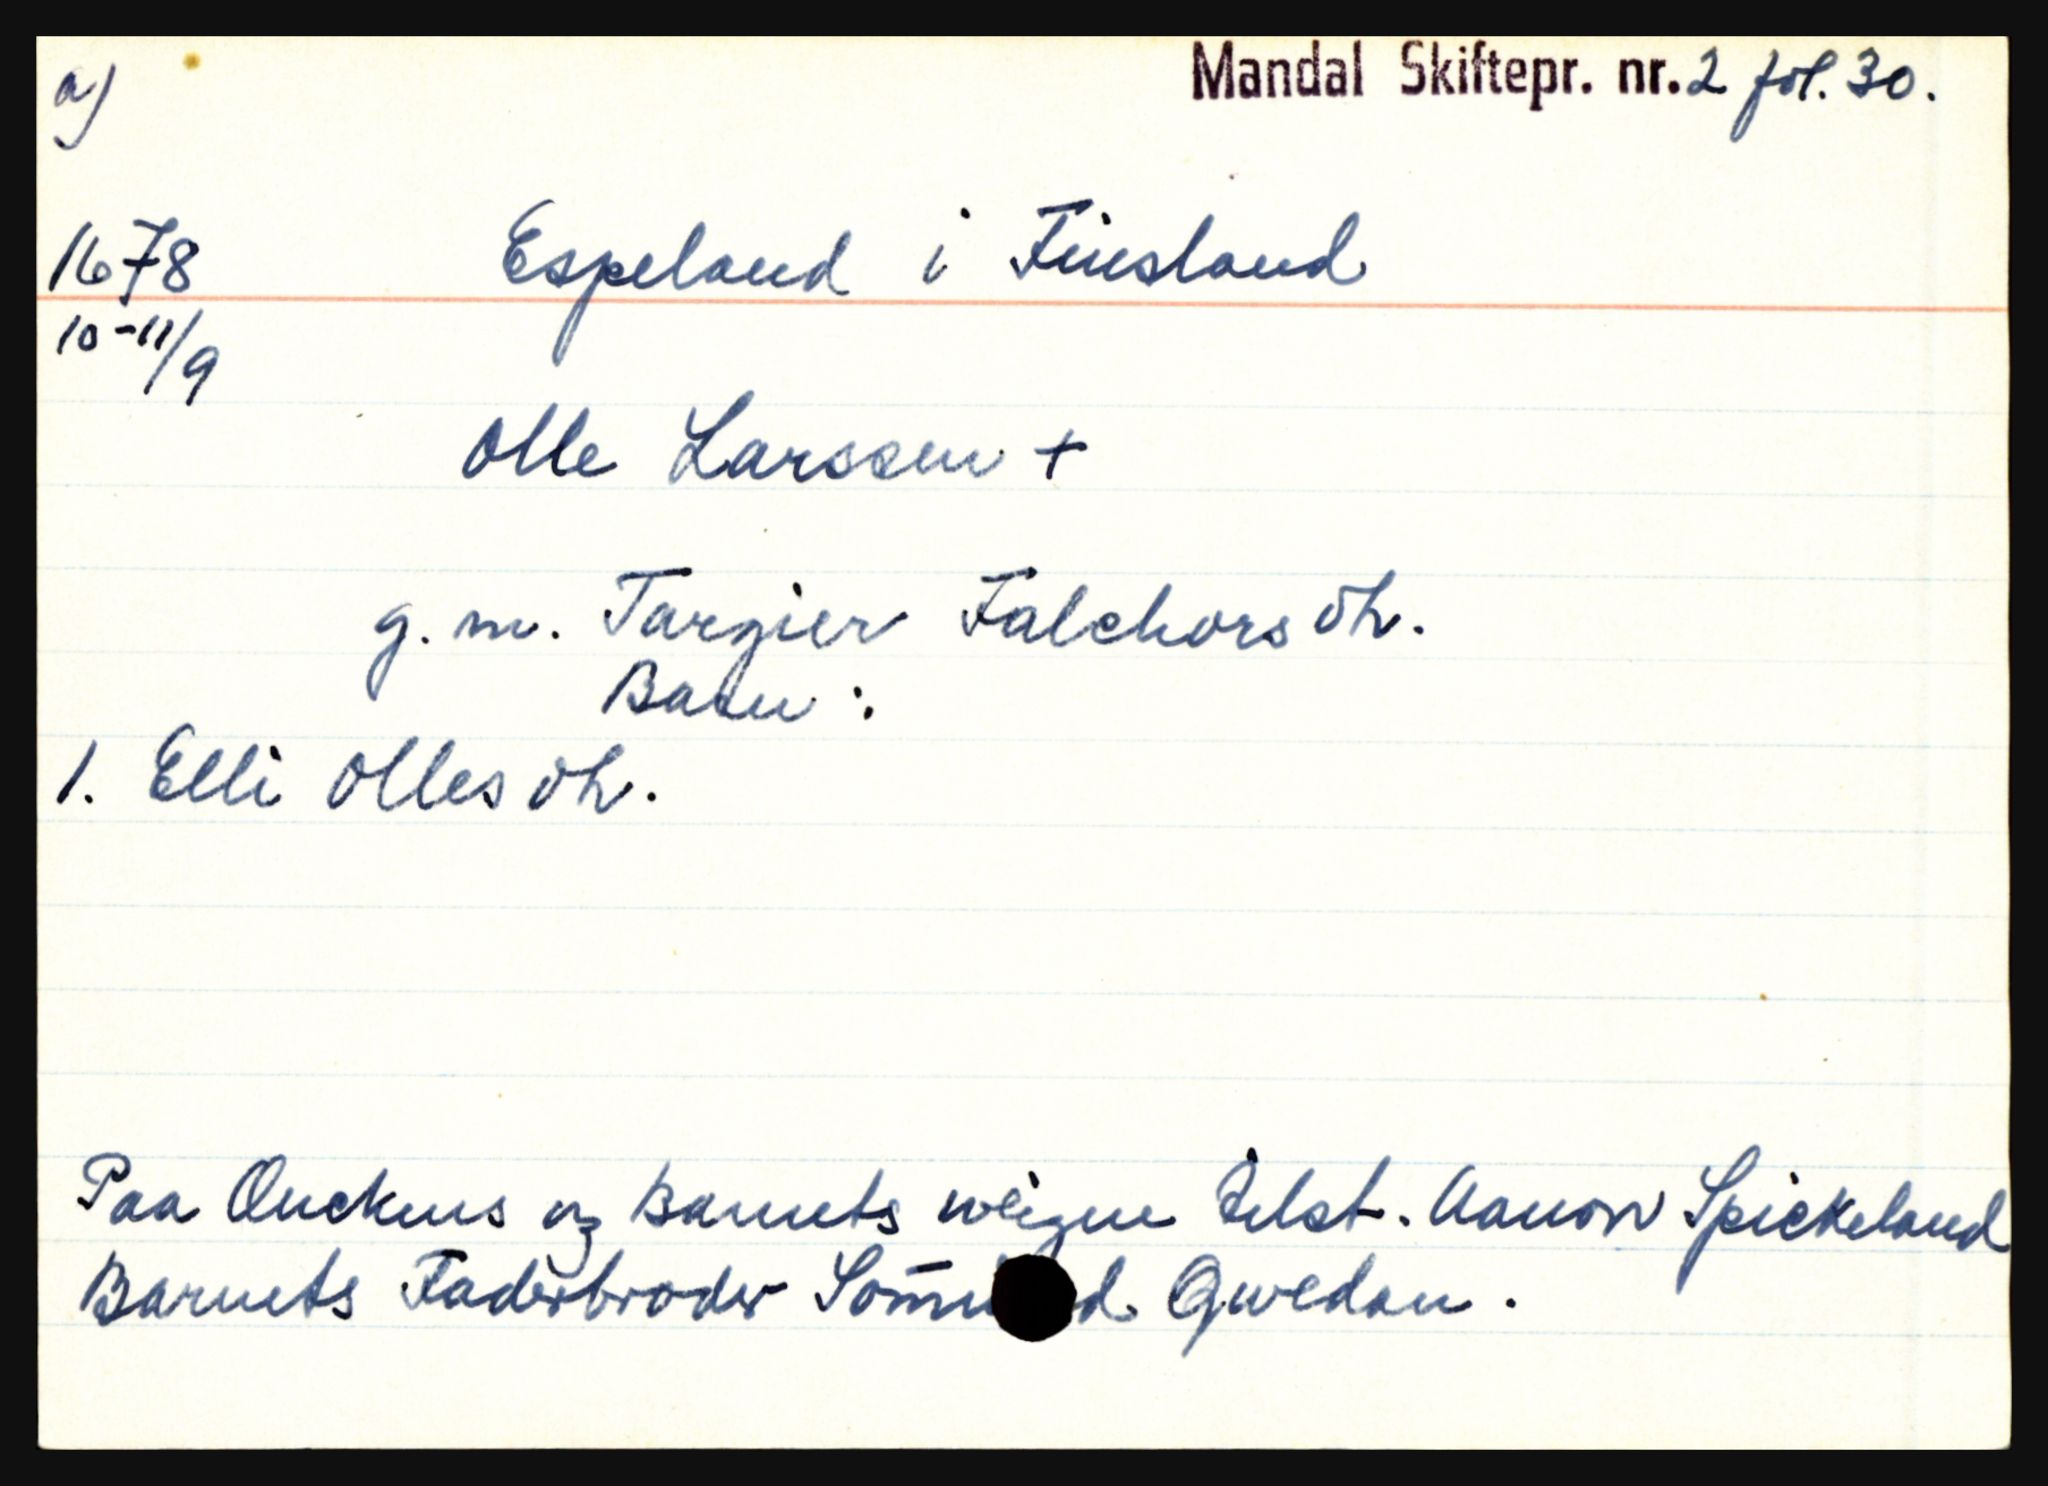 a)
Mandal Skiftepr. nr. 2 fol. 30.
1678 Espeland i Finsland
10-11/9
Olle Larssen +
g. m. Targier Falchors dtr.
Barn:
1. Elli Olles dtr.
Paa Enckens og Barnets weigne Aanon Spickeland
Barnets Faderbroder Qwedan.